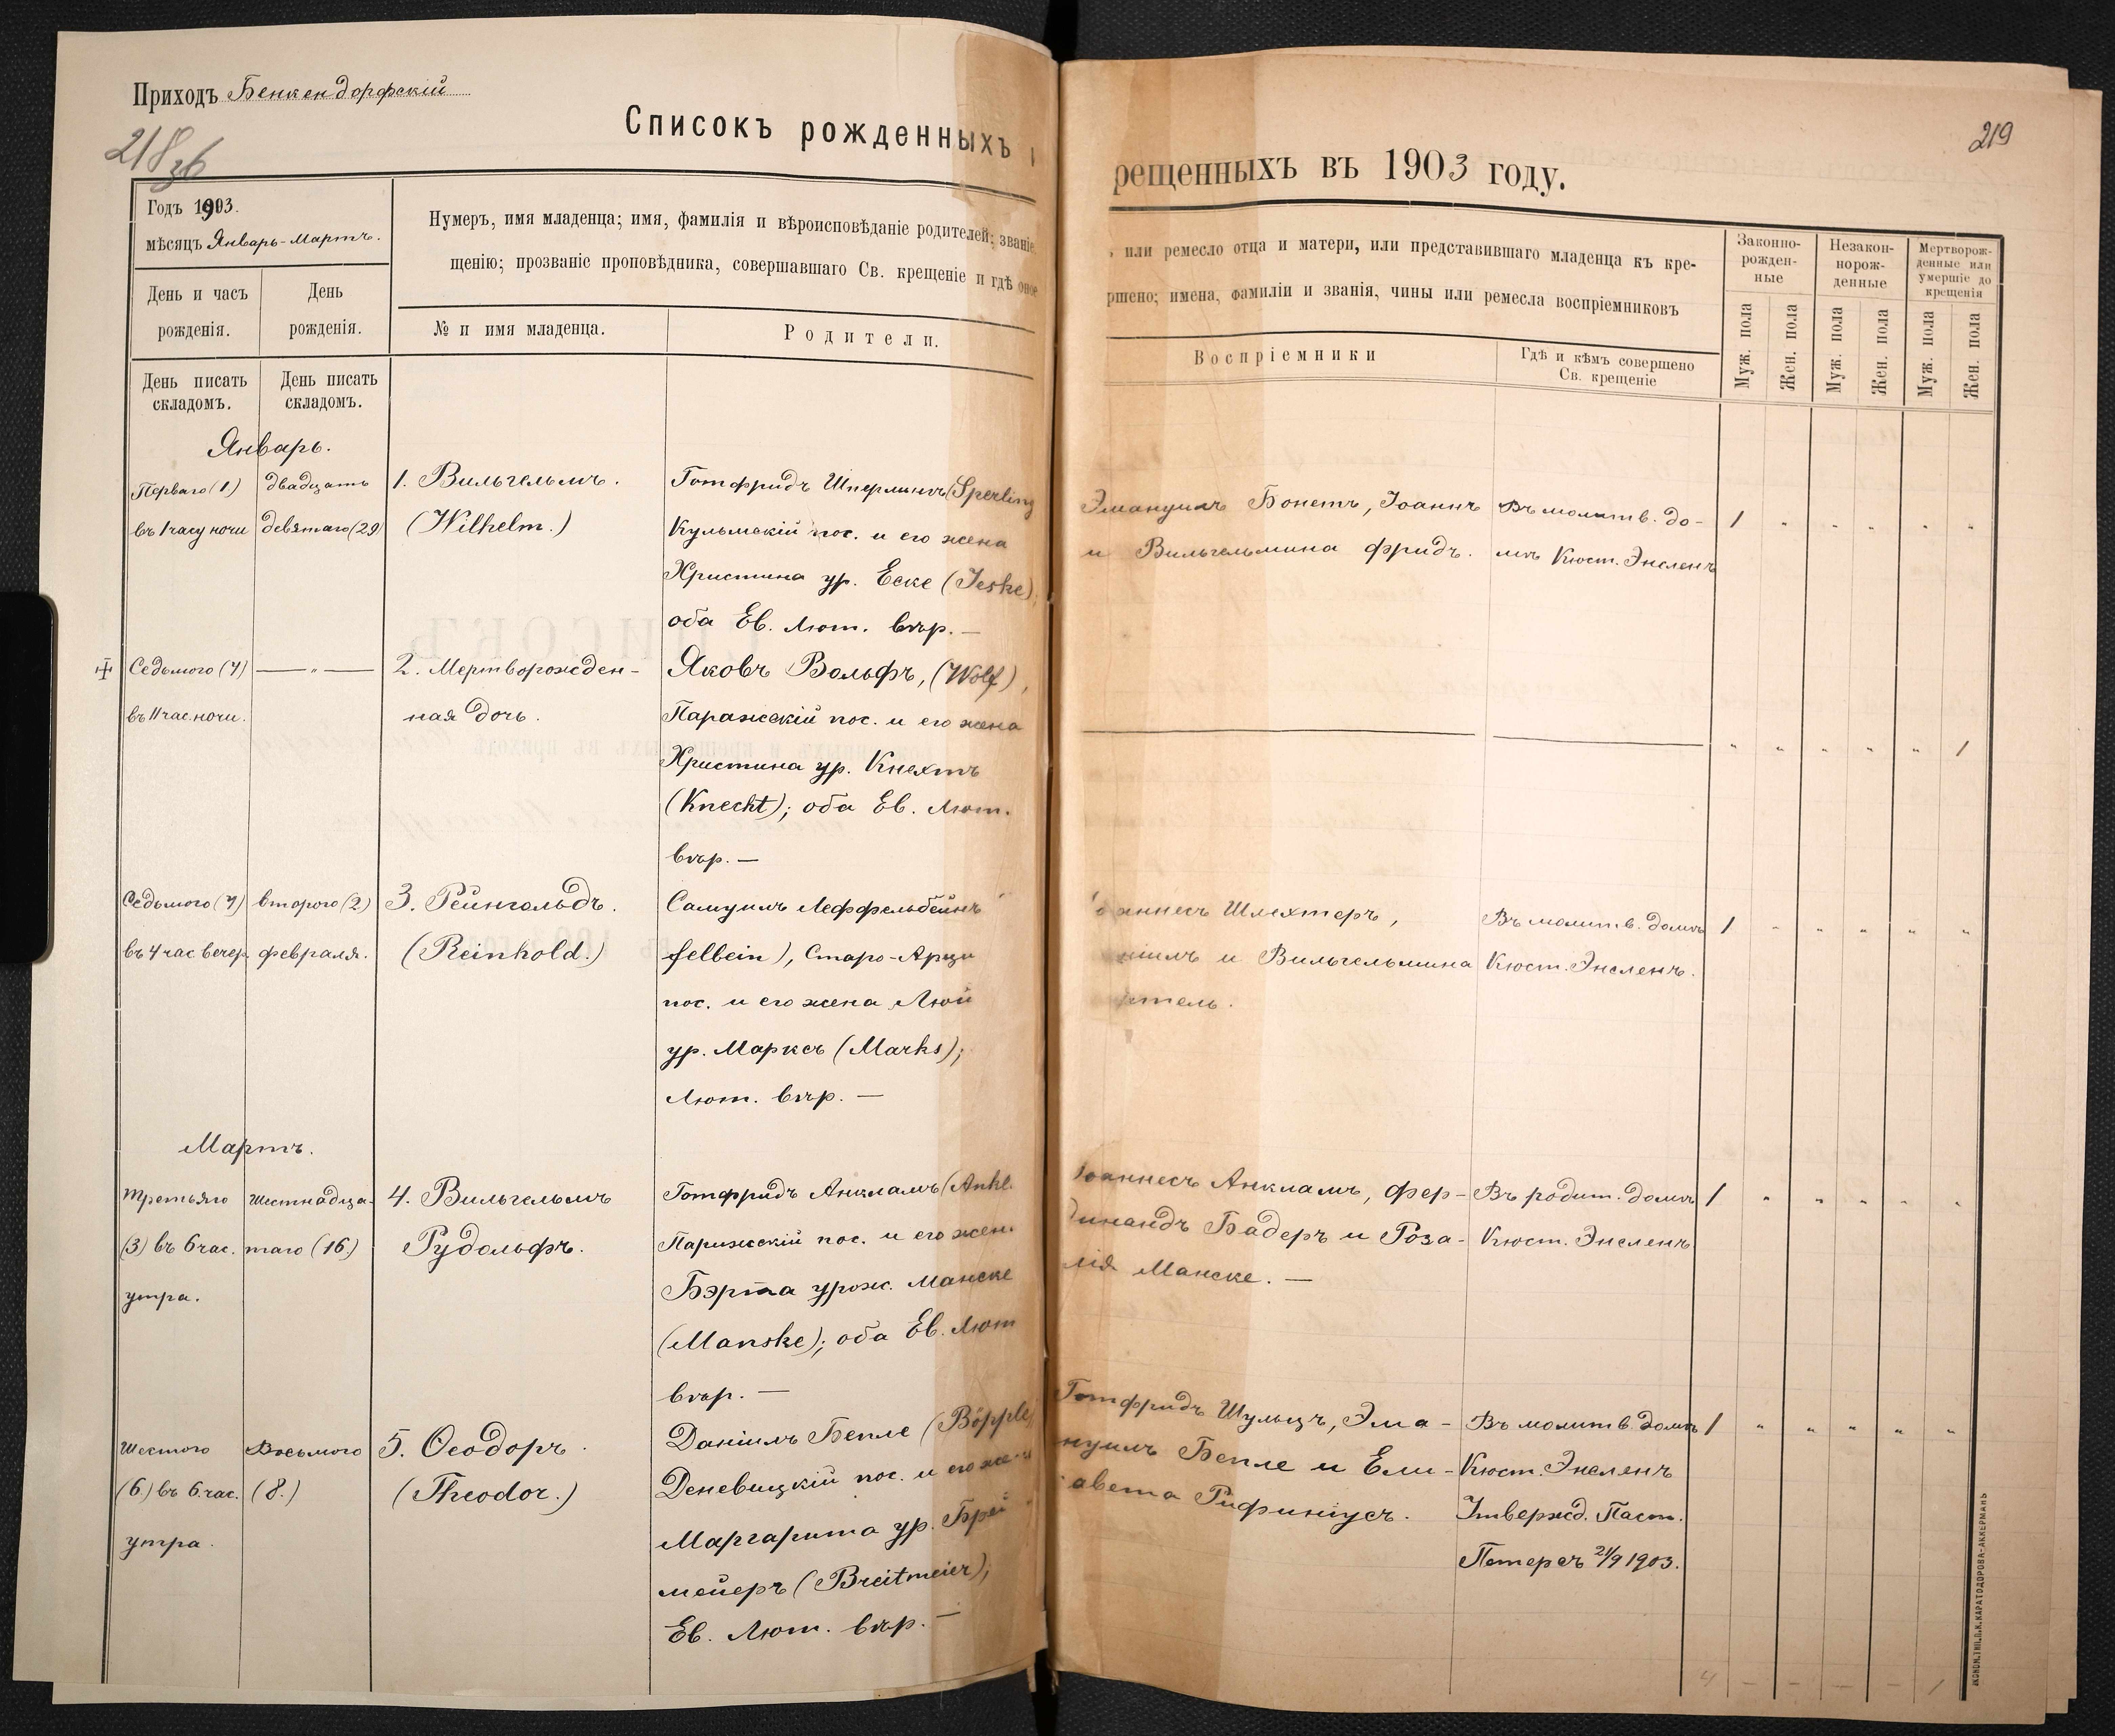 Приходъ Бенкендорфскій
218
36
Списокъ рожденныхъ
Годъ 1903.
мѣсяцъ Январь-Мартъ.
Нумеръ, имя младенца; имя, фамилія и вѣроисповѣданіе родителей; званіе
щенію; прозваніе проповѣдника, совершавшаго Св. крещеніе и гдѣ оное
День и часъ рожденія.
День рожденія.
№ и имя младенца.
Родители.
День писать складомъ.
День писать складомъ.
Январь.
Перваго (1)
въ 1 часу ночи
двадцать
девятаго (29)
1. Вильгельмъ.
(Wilhelm.)
Готфридъ Шперлингъ (Sperling
Кульмскій пос. и его жена
Христина ур. Еске (Jeske)
оба Ев. Лют. вѣр. —
Седьмого (7)
въ 11 час. ночи.
— „ —
2. Мертворожден-
ная дочь.
Яковъ Вольфъ, (Wolf),
Парижскій пос. и его жена
Христина ур. Кнехтъ
(Knecht); оба Ев. Лют.
вѣр. —
Седьмого (7)
въ 4 час вечер.
второго (2)
февраля.
3. Рейнгольдъ.
(Reinhold.)
Самуилъ Леффельбейнъ
felbein), Старо-Арци
пос. и его жена
ур. Марксъ (Marks);
Лют. вѣр. —
Мартъ.
Третьяго
(3) въ 6 час.
утра.
Шестнадца-
таго (16.)
4. Вильгельмъ
Рудольфъ.
Готфридъ Анкламъ (Ankl.
Парижскій пос. и его жен
Бэрта урож. Манске
(Manske); оба Ев. Лют
вѣр. —
Шестого
(6.) въ 6 час.
утра.
Восьмого
(8.)
5. Ѳеодоръ.
(Theodor.)
Даніилъ Бепле (Böpple)
Деневицкій пос. и его же-а
Маргарита ур. Брей
мейеръ (Breitmeier);
Ев. Лют. вѣр. —
219
рещенныхъ въ 1903 году.
, или ремесло отца и матери, или представившаго младенца къ кре-
ршено; имена, фамиліи и званія, чины или ремесла воспріемниковъ
Воспріемники
Гдѣ и кѣмъ совершено
Св. крещеніе
Законно-
рожден-
ные
Незакон-
норож-
денные
Мертворож-
денные или
умершіе до
крещенія
Муж. пола
Жен. пола
Муж. пола
Жен. пола
Муж. пола
Жен. пола
Эмануилъ Бонетъ, Іоаннъ
и Вильгельмина Фридъ.
Въ молитв. до-
мѣ Кюст. Энсленъ
1 „ „ „ „ „
„ „ „ „ „ 1
аннесъ Шлехтеръ,
ніилъ и Вильгельмина
тель.
Въ молитв. домѣ
Кюст. Энсленъ.
1 „ „ „ „ „
Іоаннесъ Анкламъ, Фер-
динандъ Бадеръ и Роза-
лія Манске. —
Въ родит. домѣ
Кюст. Энсленъ
1 „ „ „ „ „
Готфридъ Шульцъ, Эма-
нуилъ Бепле и Ели-
авета Рифиніусъ.
Въ молитв домѣ
Кюст. Энсленъ
Утвержд. Паст.
Петерсъ 21/9 1903.
1 „ „ „ „ „
4 – – – – 1
ЭКОНОМ. ТИП. П. К. КАРАТОДОРОВА-АККЕРМАНЪ